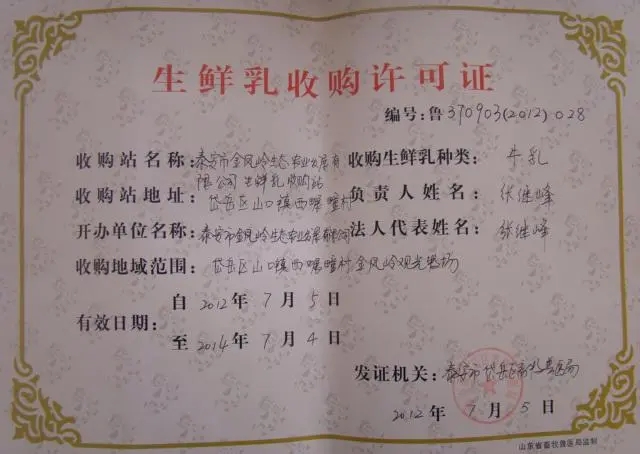 生鲜乳收购许可证
编号：鲁 370903(2012)028
收购站名称：泰安市金凤岭生态农业发展有限公司生鲜乳收购站
收购生鲜乳种类：牛乳
收购站地址：岱岳区山口镇西 村
负责人姓名：张继峰
开办单位名称：泰安市金凤岭生态农业发展有限公司
法人代表姓名：张继峰
收购地域范围：岱岳区山口镇西 村金凤岭观光 场
有效日期：
自 2012 年 7 月 5 日
至 2014 年 7 月 4 日
发证机关：泰安市岱岳区畜牧兽医局
2012 年 7 月 5 日
山东省畜牧兽医局监制